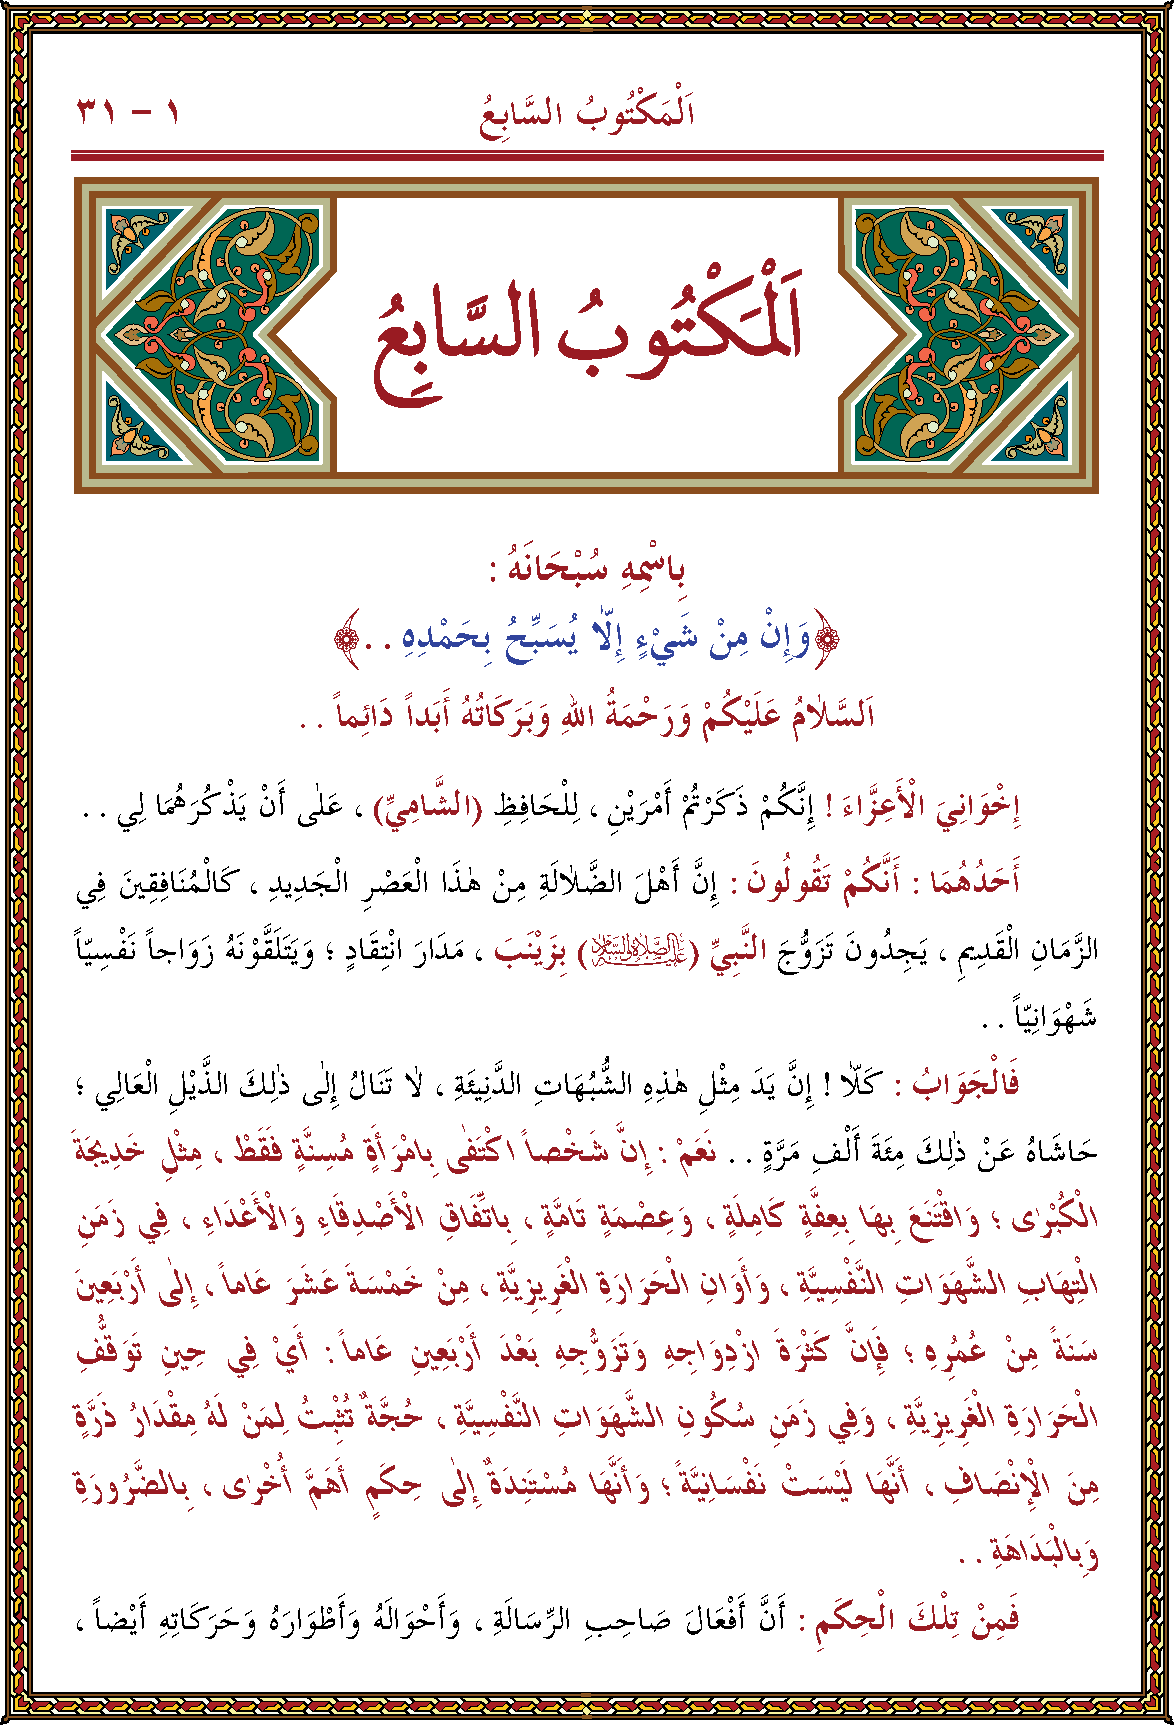 اَلْمَكْتُوبُ السَّابِعُ ١ - ٣١
اَلْمَكْتُوبُ السَّابِعُ
بِاسْمِهِ سُبْحَانَهُ :
﴿وَإِنْ مِنْ شَيْءٍ إِلَّا يُسَبِّحُ بِحَمْدِهِ . .﴾
اَلسَّلَامُ عَلَيْكُمْ وَرَحْمَةُ اللهِ وَبَرَكَاتُهُ أَبَداً دَائِماً . .
إِخْوَانِيَ الْأَعِزَّاءَ ! إِنَّكُمْ ذَكَرْتُمْ أَمْرَيْنِ ، لِلْحَافِظِ (الشَّامِيِّ) ، عَلٰى أَنْ يَذْكُرَهُمَا لِي . .
أَحَدُهُمَا : أَنَّكُمْ تَقُولُونَ : إِنَّ أَهْلَ الضَّلَالَةِ مِنْ هٰذَا الْعَصْرِ الْجَدِيدِ ، كَالْمُنَافِقِينَ فِي
الزَّمَانِ الْقَدِيمِ ، يَجِدُونَ تَزَوُّجَ النَّبِيِّ (عَلَيْهِ الصَّلَاةُ وَالسَّلَامُ) بِزَيْنَبَ ، مَدَارَ انْتِقَادٍ ؛ وَيَتَلَقَّوْنَهُ زَوَاجاً نَفْسِيّاً
شَهْوَانِيّاً . .
فَالْجَوَابُ : كَلَّا ! إِنَّ يَدَ مِثْلِ هٰذِهِ الشُّبُهَاتِ الدَّنِيئَةِ ، لَا تَنَالُ إِلٰى ذٰلِكَ الذَّيْلِ الْعَالِي ؛
حَاشَاهُ عَنْ ذٰلِكَ مِئَةَ أَلْفِ مَرَّةٍ . . نَعَمْ : إِنَّ شَخْصاً اكْتَفٰى بِامْرَأَةٍ مُسِنَّةٍ فَقَطْ ، مِثْلِ خَدِيجَةَ
الْكُبْرٰى ؛ وَاقْتَنَعَ بِهَا بِعِفَّةٍ كَامِلَةٍ ، وَعِصْمَةٍ تَامَّةٍ ، بِاتِّفَاقِ الْأَصْدِقَاءِ وَالْأَعْدَاءِ ، فِي زَمَنِ
الْتِهَابِ الشَّهَوَاتِ النَّفْسِيَّةِ ، وَأَوَانِ الْحَرَارَةِ الْغَرِيزِيَّةِ ، مِنْ خَمْسَةَ عَشَرَ عَاماً ، إِلٰى أَرْبَعِينَ
سَنَةً مِنْ عُمُرِهِ ؛ فَإِنَّ كَثْرَةَ ازْدِوَاجِهِ وَتَزَوُّجِهِ بَعْدَ أَرْبَعِينَ عَاماً : أَيْ فِي حِينِ تَوَقُّفِ
الْحَرَارَةِ الْغَرِيزِيَّةِ ، وَفِي زَمَنِ سُكُونِ الشَّهَوَاتِ النَّفْسِيَّةِ ، حُجَّةٌ تُثْبِتُ لِمَنْ لَهُ مِقْدَارُ ذَرَّةٍ
مِنَ الْإِنْصَافِ ، أَنَّهَا لَيْسَتْ نَفْسَانِيَّةً ؛ وَأَنَّهَا مُسْتَنَدَةٌ إِلٰى حِكَمٍ أَهَمَّ أُخْرٰى ، بِالضَّرُورَةِ
وَبِالْبَدَاهَةِ . .
فَمِنْ تِلْكَ الْحِكَمِ : أَنَّ أَفْعَالَ صَاحِبِ الرِّسَالَةِ ، وَأَحْوَالَهُ وَأَطْوَارَهُ وَحَرَكَاتِهِ أَيْضاً ،